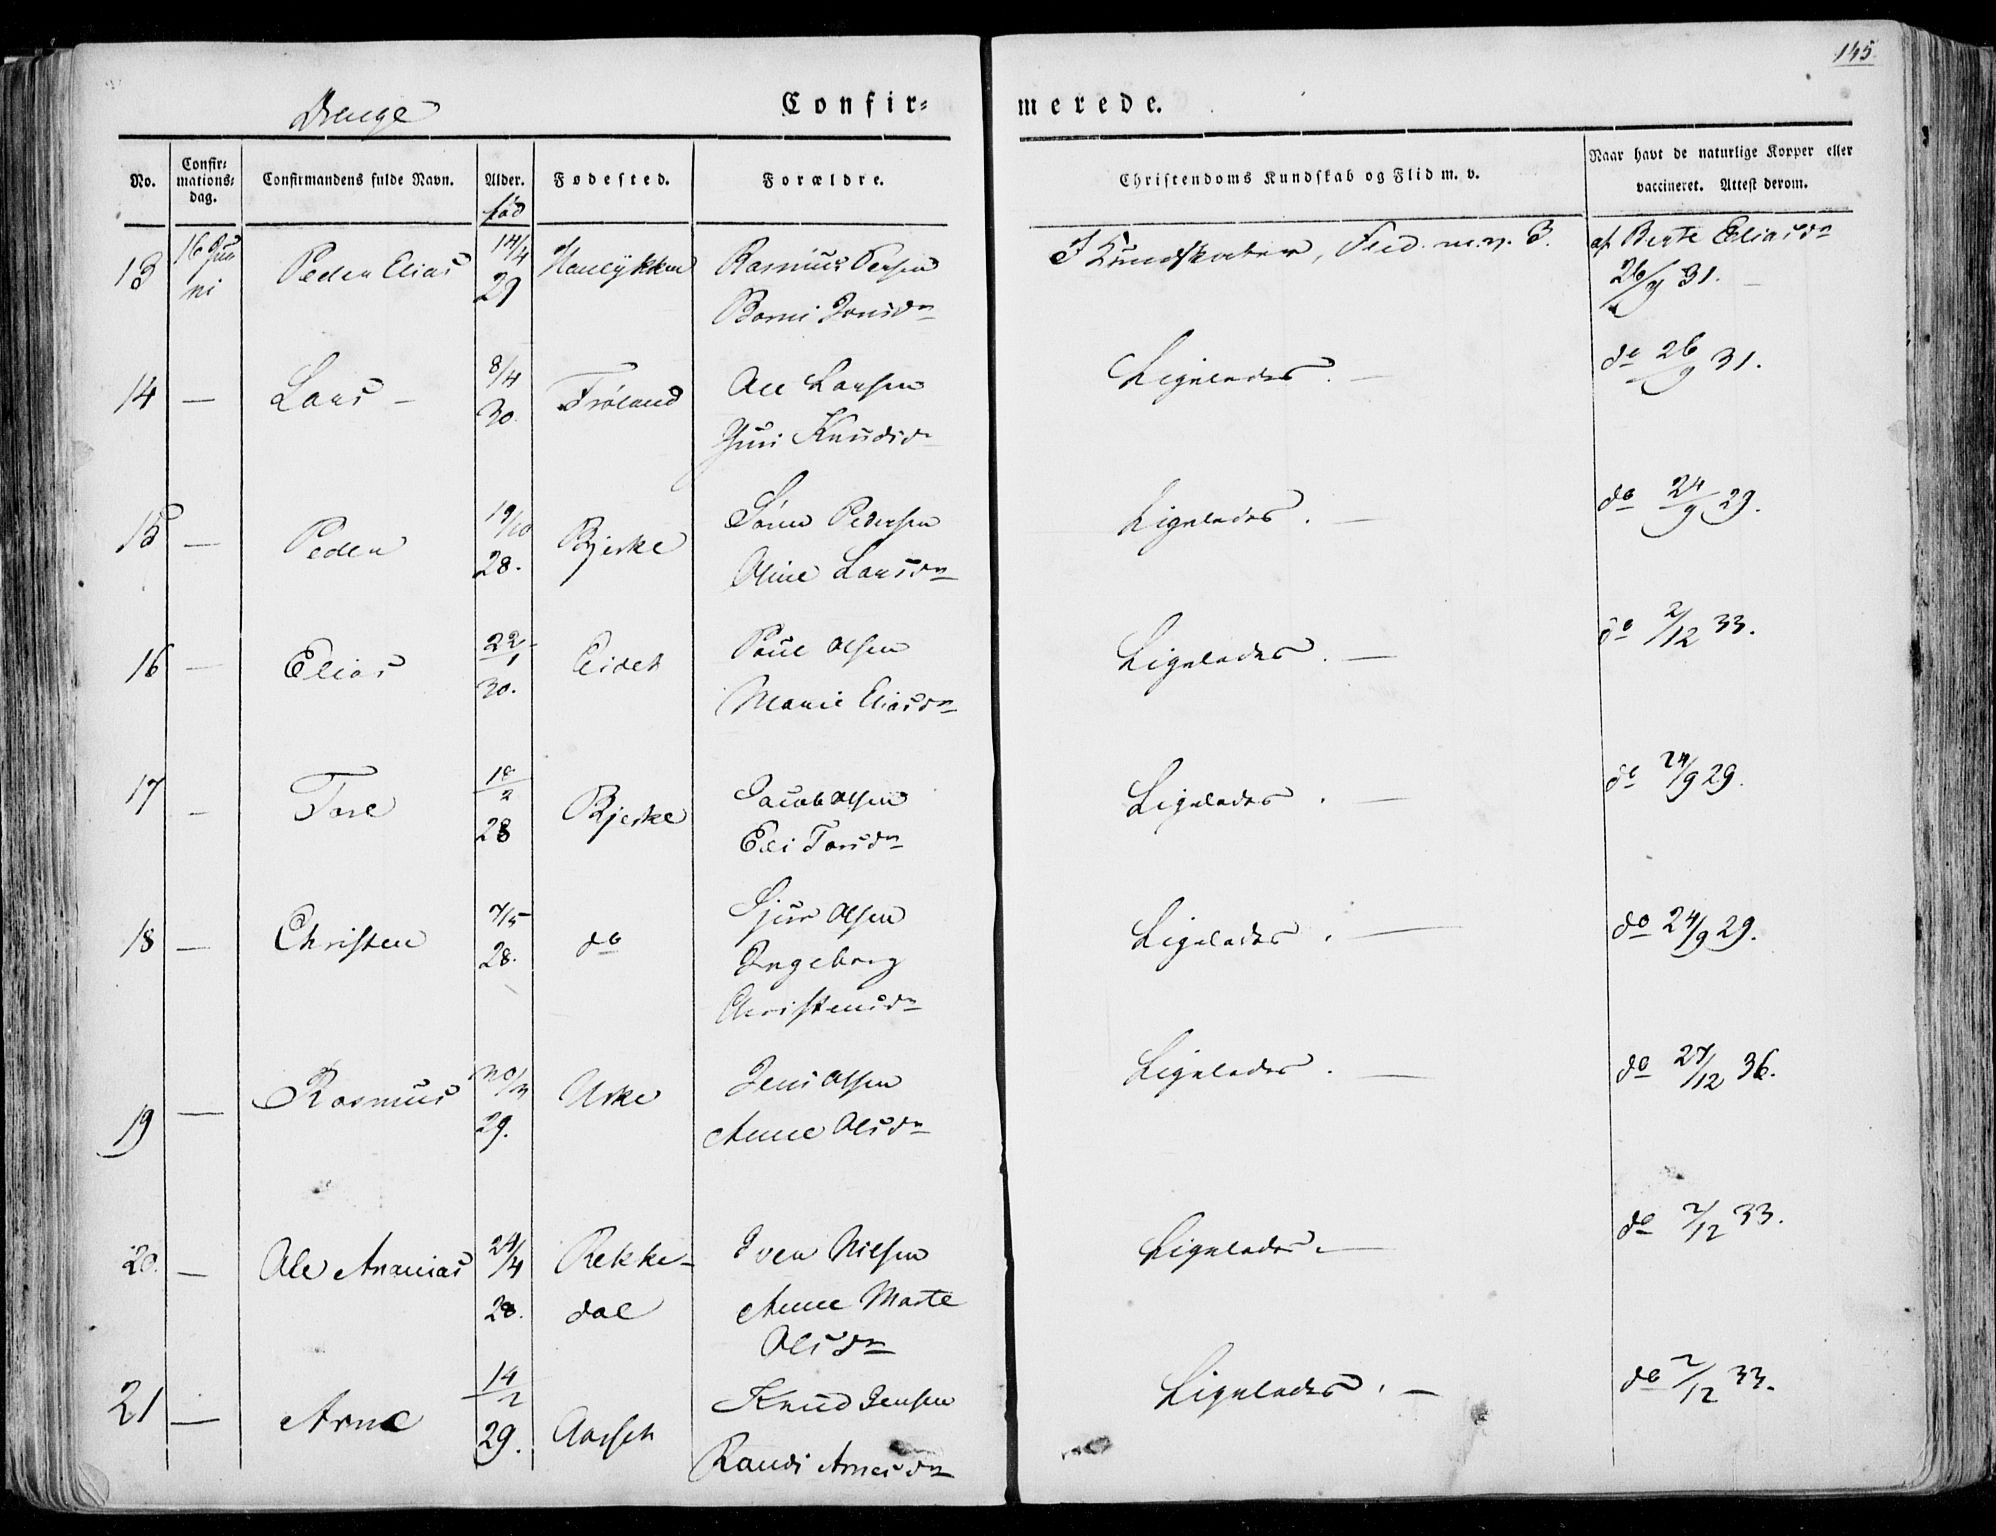 145.
Drenge Confir= merede.
No. Confir= mations= dag. Confirmandens fulde Navn. Alder. Fødested. Forældre. Christendoms Kundskab og Flid m. v. Naar havt de naturlige Kopper eller vaccineret. Attest derom.
fød
13 16 Juni Peder Elias 14/4 29 Rasmus Persen I Kundskaber, Flid m.v. 3. af Berte Eliasdr 26/9 31.
Jonsdr
14 — Lars — 8/4 30. Frøland Ole Larsen Ligeledes. — do 26/9 31.
Guri Knudsdr
15 — Peder 19/10 28. Bjerke Søren Pedersen Ligeledes. — do 24/9 29.
Oline Larsdr
16 — Elias 22/1 30. Eidet Poul Olsen Ligeledes. — do 2/12 33.
Marie Eliasdr
17 — Tore 18/2 28 Bjerke Jacob Olsen Ligeledes. — do 24/9 29.
Eli Torsdr
18 — Christen 7/5 28. do Sjur Olsen Ligeledes. — do 24/9 29.
Ingeborg
Christensdr
19 — Rasmus 20/3 29. Aske Jens Olsen Ligeledes. — do 27/12 36.
Anne Olsdr
20. — Ole Ananias 24/4 28. Rekke- Iver Nilsen Ligeledes. — do 2/12 33.
dal Anne Marte
Olsdr
21 — Arne 14/2 29. Aarset Knud Jensen Ligeledes. — do 2/12 33.
Randi Arnesdr